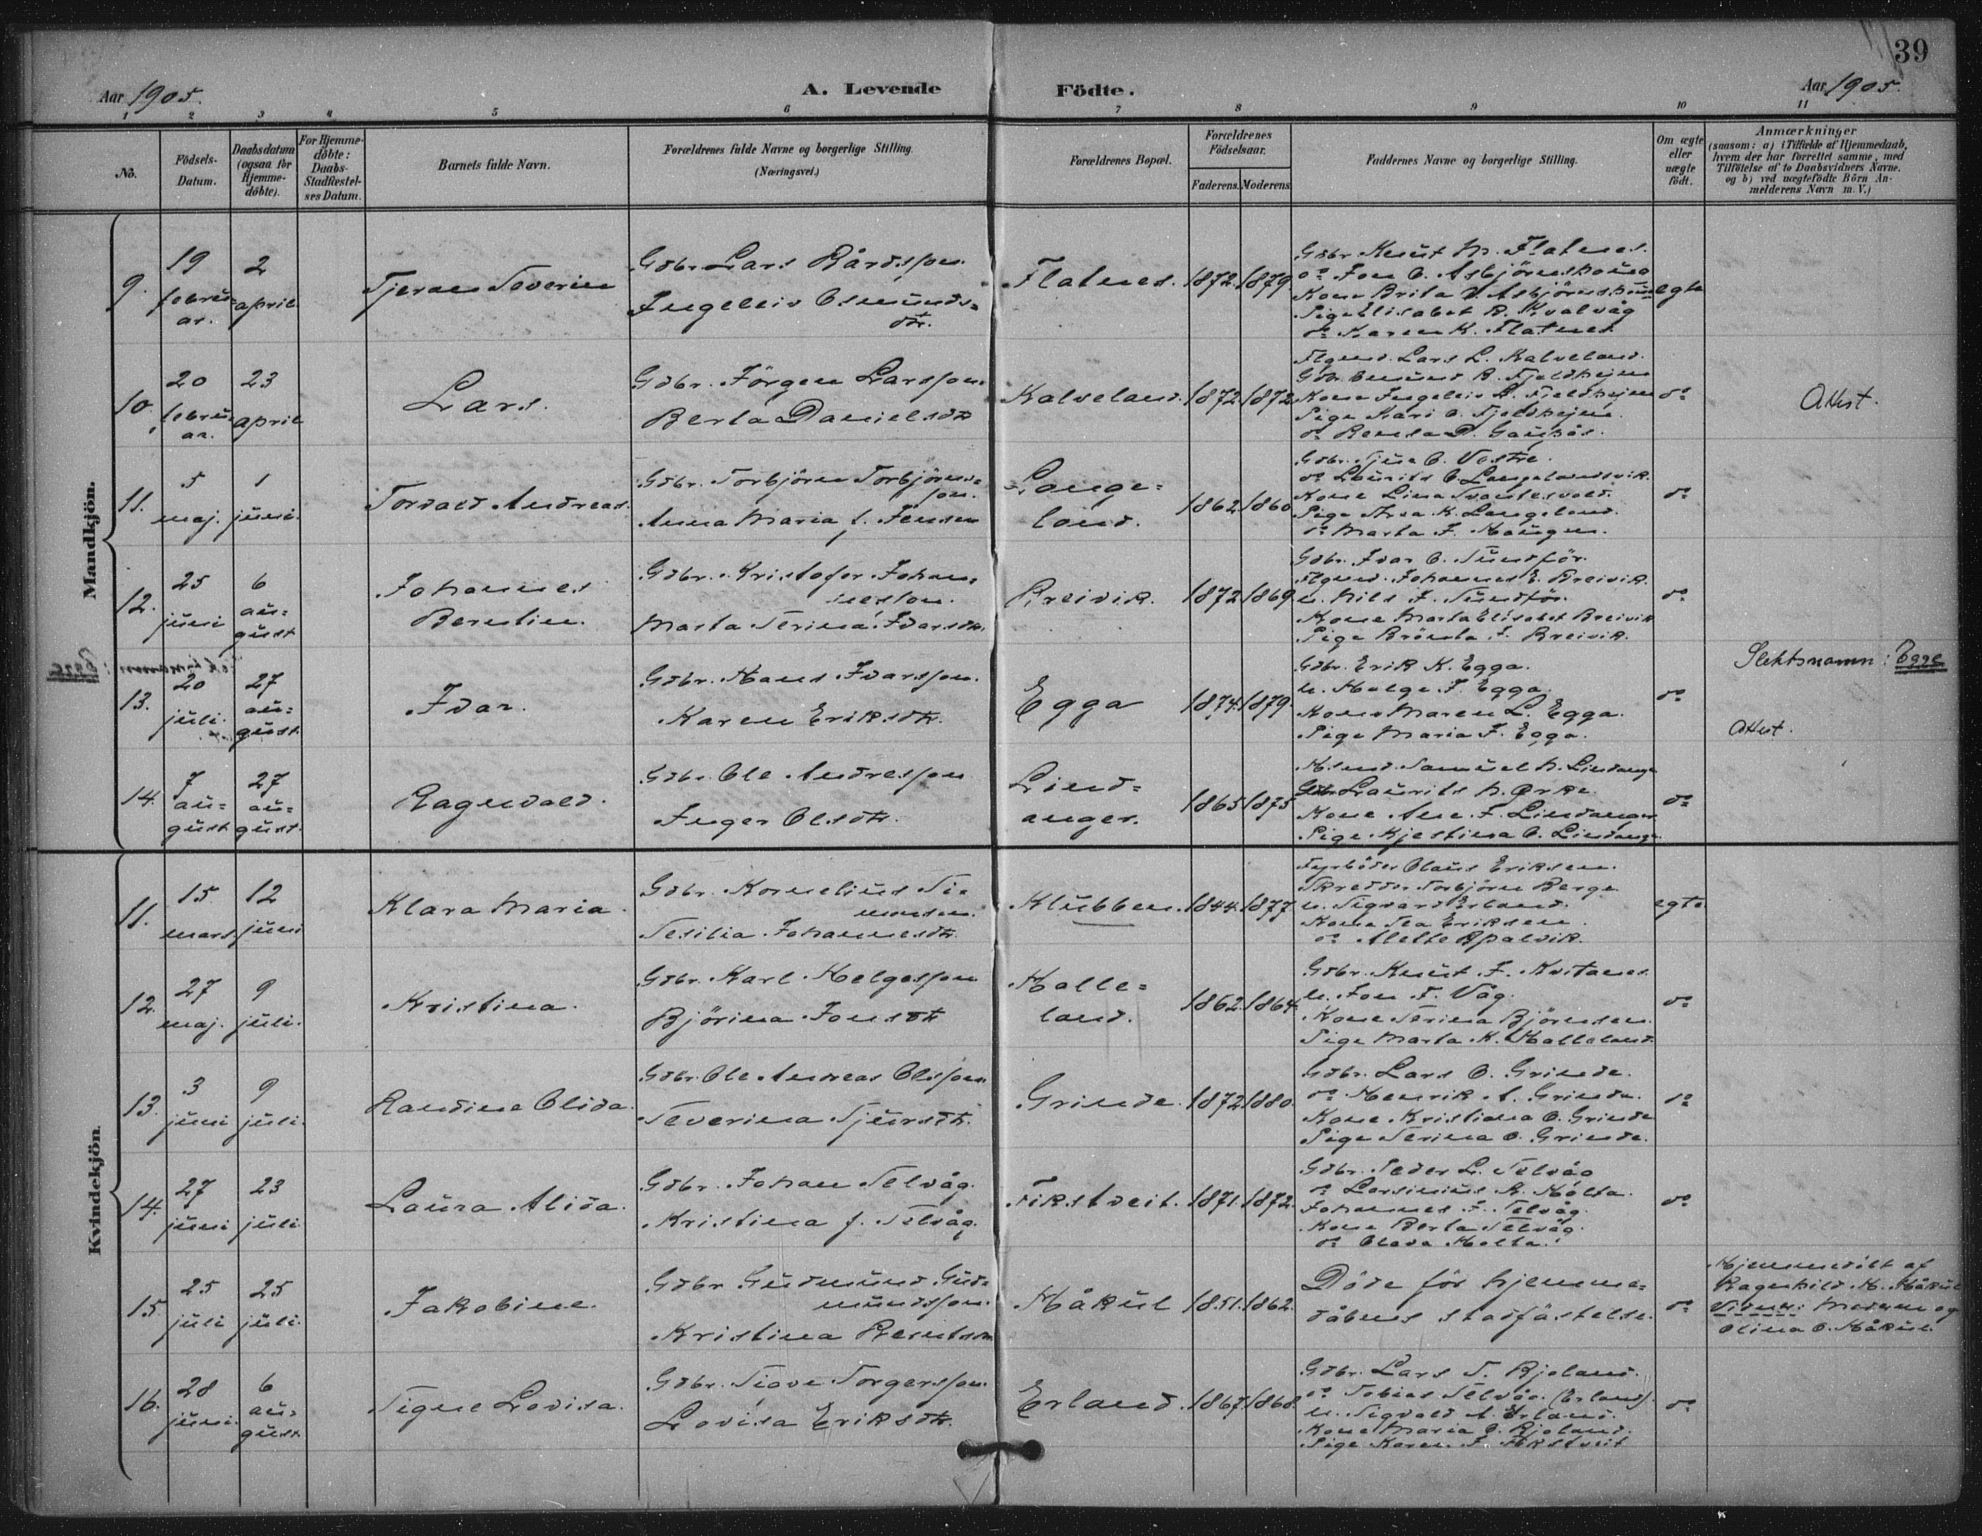 39
Aar 1905.
A. Levende Födte.
Aar 1905.
1 2 3 4 5 6 7 8 9 10 11
No.
Födsels-Datum.
Daabsdatum (ogsaa for Hjemme-döbte).
For Hjemme-döbte: Daabs-Stadfæstel-ses Datum.
Barnets fulde Navn.
Forældrenes fulde Navne og borgerlige Stilling.
(Næringsvei.)
Forældrenes Bopæl.
Forældrenes Födselsaar.
Faderens. Moderens
Faddernes Navne og borgerlige Stilling.
Om ægte eller uægte födt.
Anmærkninger
(saasom: a) i Tilfælde af Hjemmedaab,
hvem der har forrettet samme, med
Tilföielse af to Daabsvidners Navne.
og b) ved uægtefödte Börn An-
melderens Navn m. V.)
Mandkjön.
9. 19 februar. 2 april
Severin
Gdbr. Lars Bårdsson.
Ingeleiv Osmunds=
dtr.
Flatnes. 1872. 1879.
Gdbr Knut M. Flatnes.
do Jon O. Asbjörnshaug
Kone Brita
Pige Elisabet B. Kvalvåg
do Karen K. Flatnes
egte
10. 20 februar. 23 april
Lars.
Gdbr. Jörgen Larsson.
Berta Danielsdtr
Kalveland. 1872 1872
Lars L. Kalveland.
Gdbr. Omund B. Fjeldhejm
Kone Ingeleiv A. Fjeldhejm
Pige Kari O. Fjeldhejm.
do D.
do
Attest.
11. 5 maj. 1 juni.
Torvald Andreas.
Gdbr. Torbjörn Torbjörns=
son.
Anna Maria f. Jensen
Lange=
land.
1862 1860
Gdbr. O.
do Laurits O. Langelandsvik.
Kone Lina
Pige K. Langeland.
do Marta J. Haugen.
do
12. 25 juni 6 august
Johannes
Berntin.
Gdbr. Kristofer Johan=
nesson.
Marta Serina Ivarsdtr.
Breivik. 1872 1869
Gdbr. Ivar O. Sundför.
Johannes E. Breivik.
u. Nils J. Sundför.
Kone Marta Elisabet Breivik
Pige J. Breivik.
do
13. 20 juli. 27 august
Ivar.
Gdbr. Hans Ivarsson.
Karen Eriksdtr.
Egga 1874. 1879.
Gdbr. Erik K. Egga.
u. Helge J. Egga.
Kone Maren L. Egga.
Pige Maria J. Egga.
do
Slektsnamn: Egge
Attest.
14. 7 august 27 august.
Ragnvald.
Gdbr. Ole Andresson
Inger Olsdtr.
Lind=
anger.
1865 1875
Samuel N. Lindanger
Gdbr Laurits N.
Kone Ane J. Lindanger
Pige Kjestina O. Lindanger
do
Kvindekjön.
11. 15. mars 12 juni
Klara Maria.
Gdbr. Kornelius Si=
monsen.
Sesilia Johannesdtr.
Klubben. 1844. 1877.
Fyrböder Olaus Eriksen.
Skredder Torbjörn Berge
u. Sigvard Erland.
Kone Sea Eriksen.
do Alette
egte.
12. 27 maj. 9 juli.
Kristina.
Gdbr. Karl Helgesson
Björina Jonsdtr
Halle=
land.
1862 1864.
Gdbr. Knut J. Kvitanes
u. Jon T. Våg.
Kone Serina Björnsen.
Pige Marta K. Halleland.
do
13. 3 juni 9 juli.
Randine Olida.
Gdbr. Ole Andreas Olsson.
Severina Sjursdtr.
Grinde. 1872 1880.
Gdbr. Lars O. Grinde.
do Henrik A. Grinde.
Kone Kristiana O. Grinde
Pige Serina O. Grinde.
do
14. 27 juni 23 juli
Laura Alida.
Gdbr. Johan Selvåg.
Kristina f. Selvåg.
Fikstveit. 1871. 1872.
Gdbr. Peder L. Selvåg
do Larsinius
Johannes J. Selvåg.
Kone Berta Selvåg.
do Olava
do
15. 25 juli 25 juli.
Jakobine.
Gdbr Gudmund Gud=
mundsson.
Kristina Berntsdtr
Håkul 1851. 1862.
Döde för hjemme=
dåbens stadfästelse.
do
Hjemmedöbt af
Ragnhild M. Håkul
Vidner: Moderen og
Olina O. Håkul.
16. 28 juni. 6 august.
Signe Lovisa.
Gdbr. Torgersson.
Lovisa Eriksdtr.
Erland. 1867. 1868.
Gdbr. Lars T. Bjoland.
do Tobias Selvåg. (Erland).
u. Sigvald A. Erland.
Kone Maria O. Bjoland.
Pige Karen J. Fikstveit
do